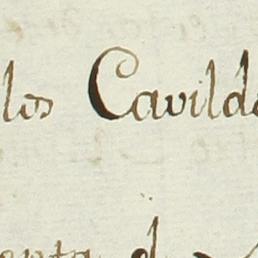 los Cavildo
enta d